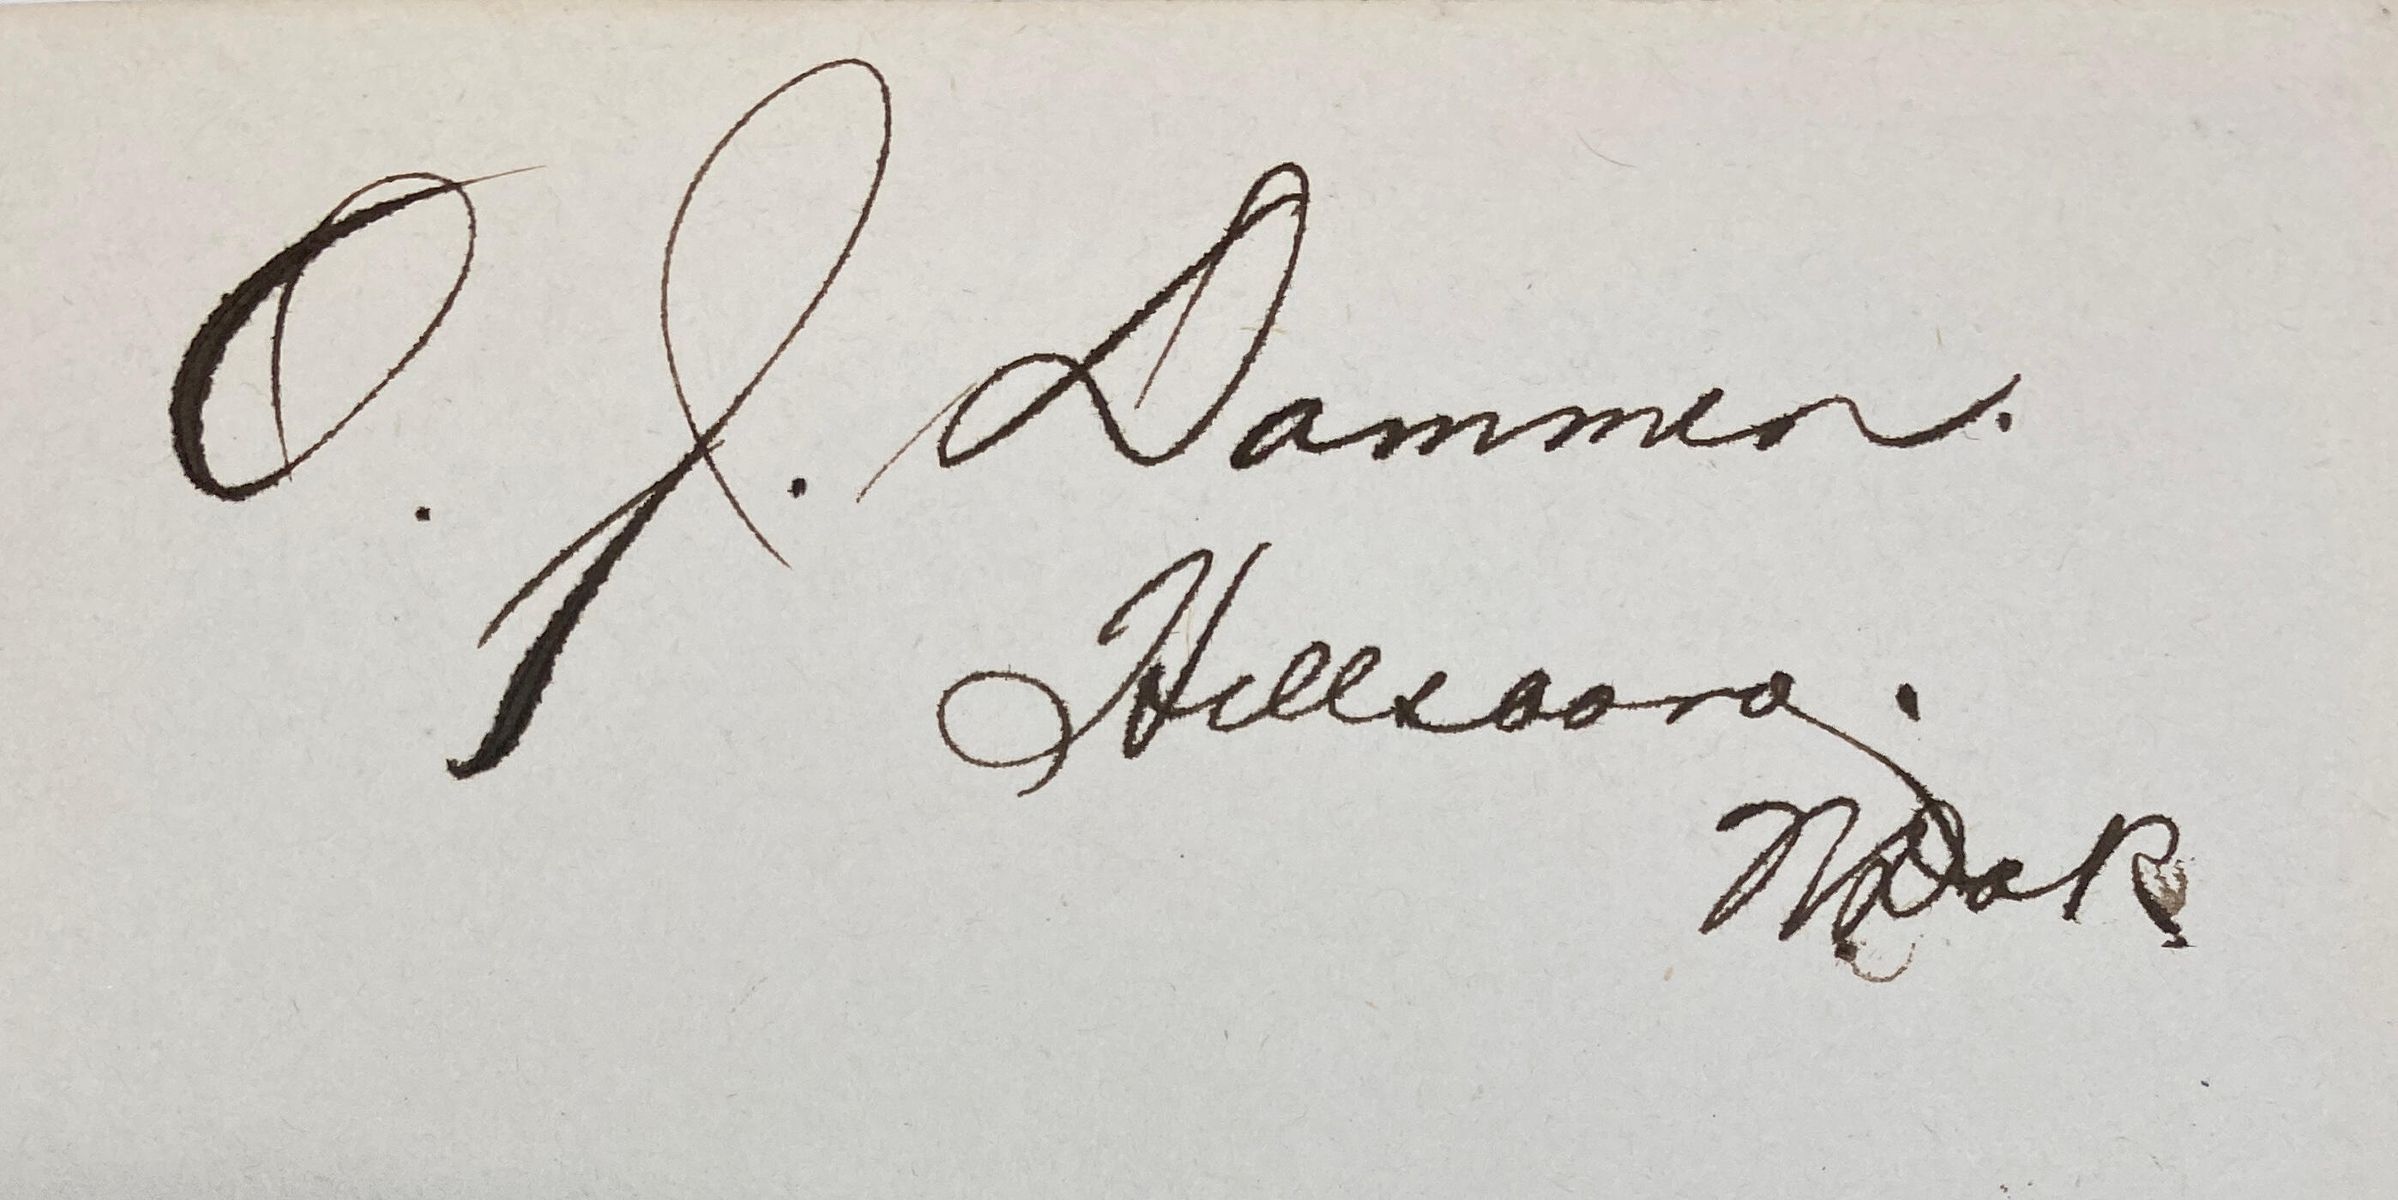 O. J. Dammen.
Hillsboro.
N Dak